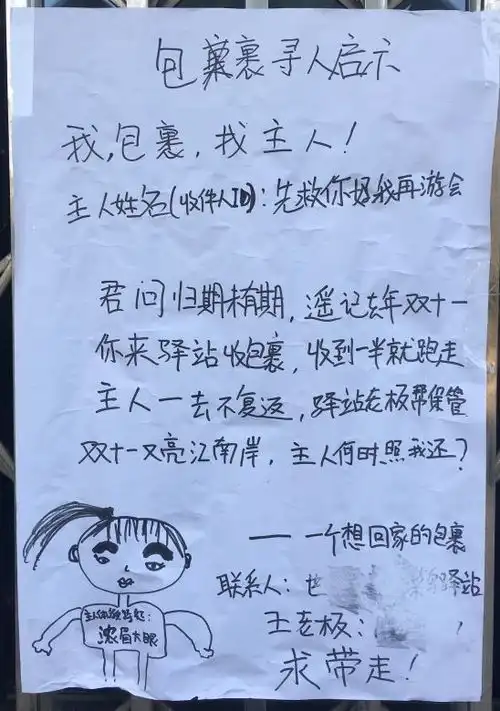 包裹寻人启示
我，包裹，找主人！
主人姓名(收件人ID)：先救你好我再游会
君问归期未有期，遥记去年双十一
你来驿站收包裹，收到一半就跑走
主人一去不复返，驿站老板帮保管
双十一又亮江南岸，主人何时照我还？
——一个想回家的包裹
联系人：世 驿站
王老板：
求带走！
主人体貌特征：
浓眉大眼